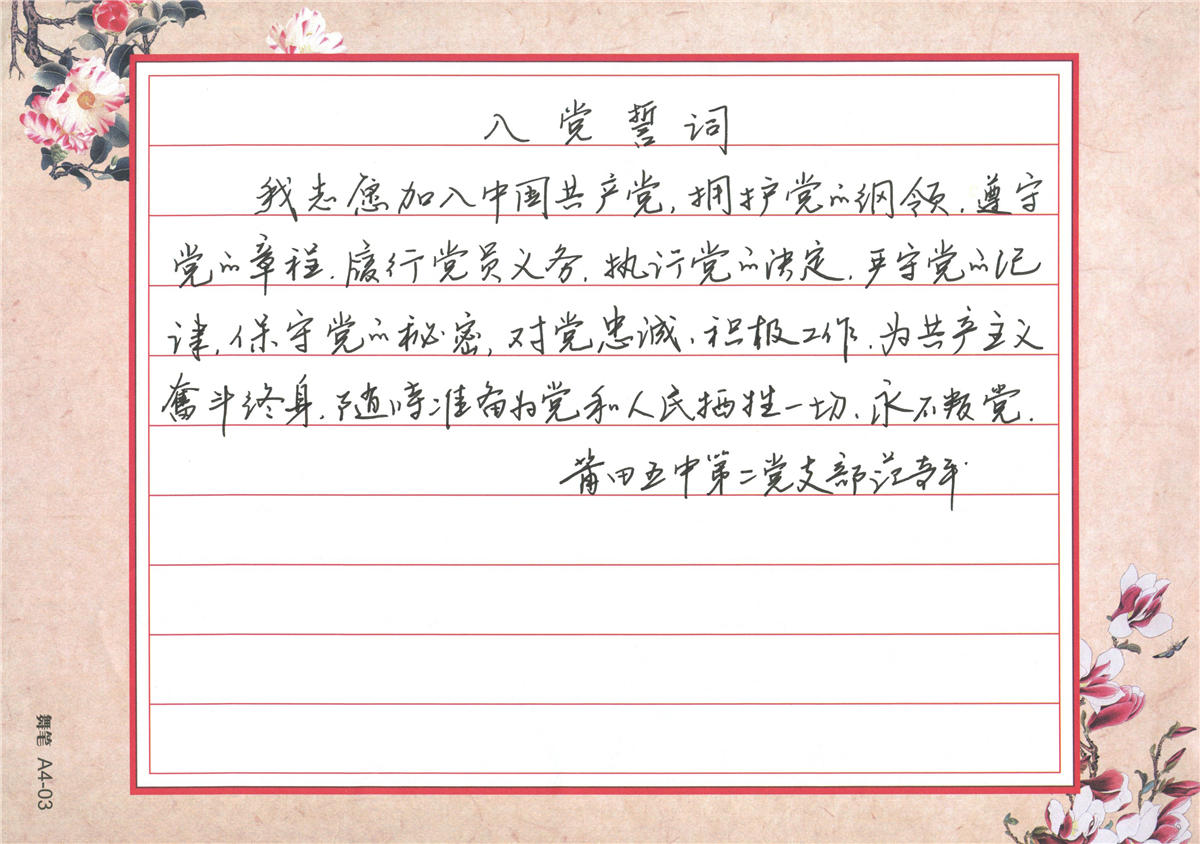 入党誓词
我志愿加入中国共产党,拥护党的纲领,遵守
党的章程,履行党员义务,执行党的决定,严守党的纪
律,保守党的秘密,对党忠诚,积极工作,为共产主义
奋斗终身,随时准备为党和人民牺牲一切,永不叛党.
莆田五中第二党支部范
舞笔 A4-03